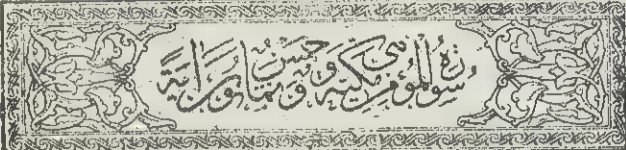 سورة المؤمن مكية وهى خمس وثمانون اية